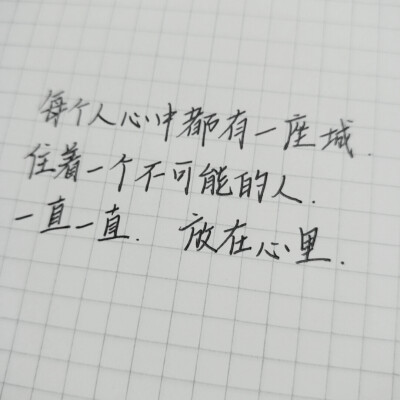 每个人心中都有一座城.
住着一个不可能的人.
一直一直. 放在心里.